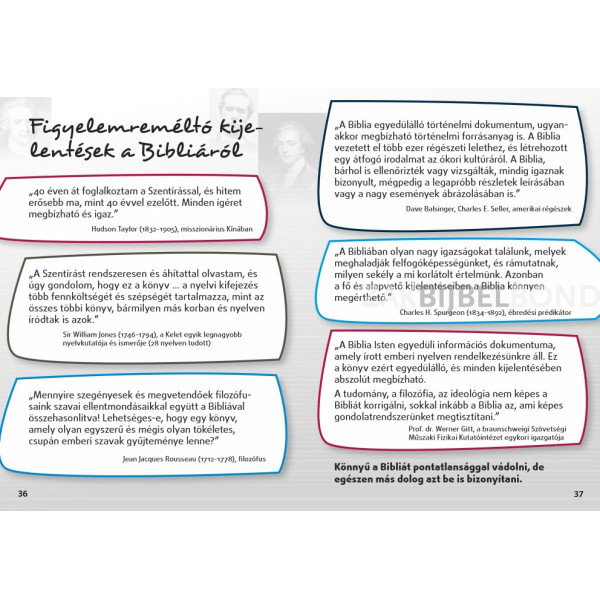 Figyelemreméltó kije-
lentések a Bibliáról
„40 éven át foglalkoztam a Szentírással, és hitem
erősebb ma, mint 40 évvel ezelőtt. Minden ígéret
megbízható és igaz.”
Hudson Taylor (1832-1905), misszionárius Kínában
„A Szentírást rendszeresen és áhítattal olvastam, és
úgy gondolom, hogy ez a könyv ... a nyelvi kifejezés
több fennköltségét és szépségét tartalmazza, mint az
összes többi könyv, bármilyen más korban és nyelven
íródtak is azok.”
Sir William Jones (1746–1794), a Kelet egyik legnagyobb
nyelvkutatója és ismerője (28 nyelven tudott)
„Mennyire szegényesek és megvetendőek filozófu-
saink szavai ellentmondásaikkal együtt a Bibliával
összehasonlítva! Lehetséges-e, hogy egy könyv,
amely olyan egyszerű és mégis olyan tökéletes,
csupán emberi szavak gyűjteménye lenne?”
Jean Jacques Rousseau (1712-1778), filozófus
36
„A Biblia egyedülálló történelmi dokumentum, ugyan-
akkor megbízható történelmi forrásanyag is. A Biblia
vezetett el több ezer régészeti lelethez, és létrehozott
egy átfogó irodalmat az ókori kultúráról. A Biblia,
bárhol is ellenőrizték vagy vizsgálták, mindig igaznak
bizonyult, mégpedig a legapróbb részletek leírásában
vagy a nagy események ábrázolásában is.”
Dave Balsinger, Charles E. Seller, amerikai régészek
„A Bibliában olyan nagy igazságokat találunk, melyek
meghaladják felfogóképességünket, és rámutatnak,
milyen sekély a mi korlátolt értelmünk. Azonban
a fő és alapvető kijelentéseiben a Biblia könnyen
megérthető.”
Charles H. Spurgeon (1834–1892), ébredési prédikátor
„A Biblia Isten egyedüli információs dokumentuma,
amely írott emberi nyelven rendelkezésünkre áll. Ez
a könyv ezért egyedülálló, és minden kijelentésében
abszolút megbízható.
A tudomány, a filozófia, az ideológia nem képes a
Bibliát korrigálni, sokkal inkább a Biblia az, ami képes
gondolatrendszerünket megtisztítani.”
Prof. dr. Werner Gitt, a braunschweigi Szövetségi
Műszaki Fizikai Kutatóintézet egykori igazgatója
Könnyű a Bibliát pontatlansággal vádolni, de
egészen más dolog azt be is bizonyítani.
37
BIJBELBOND